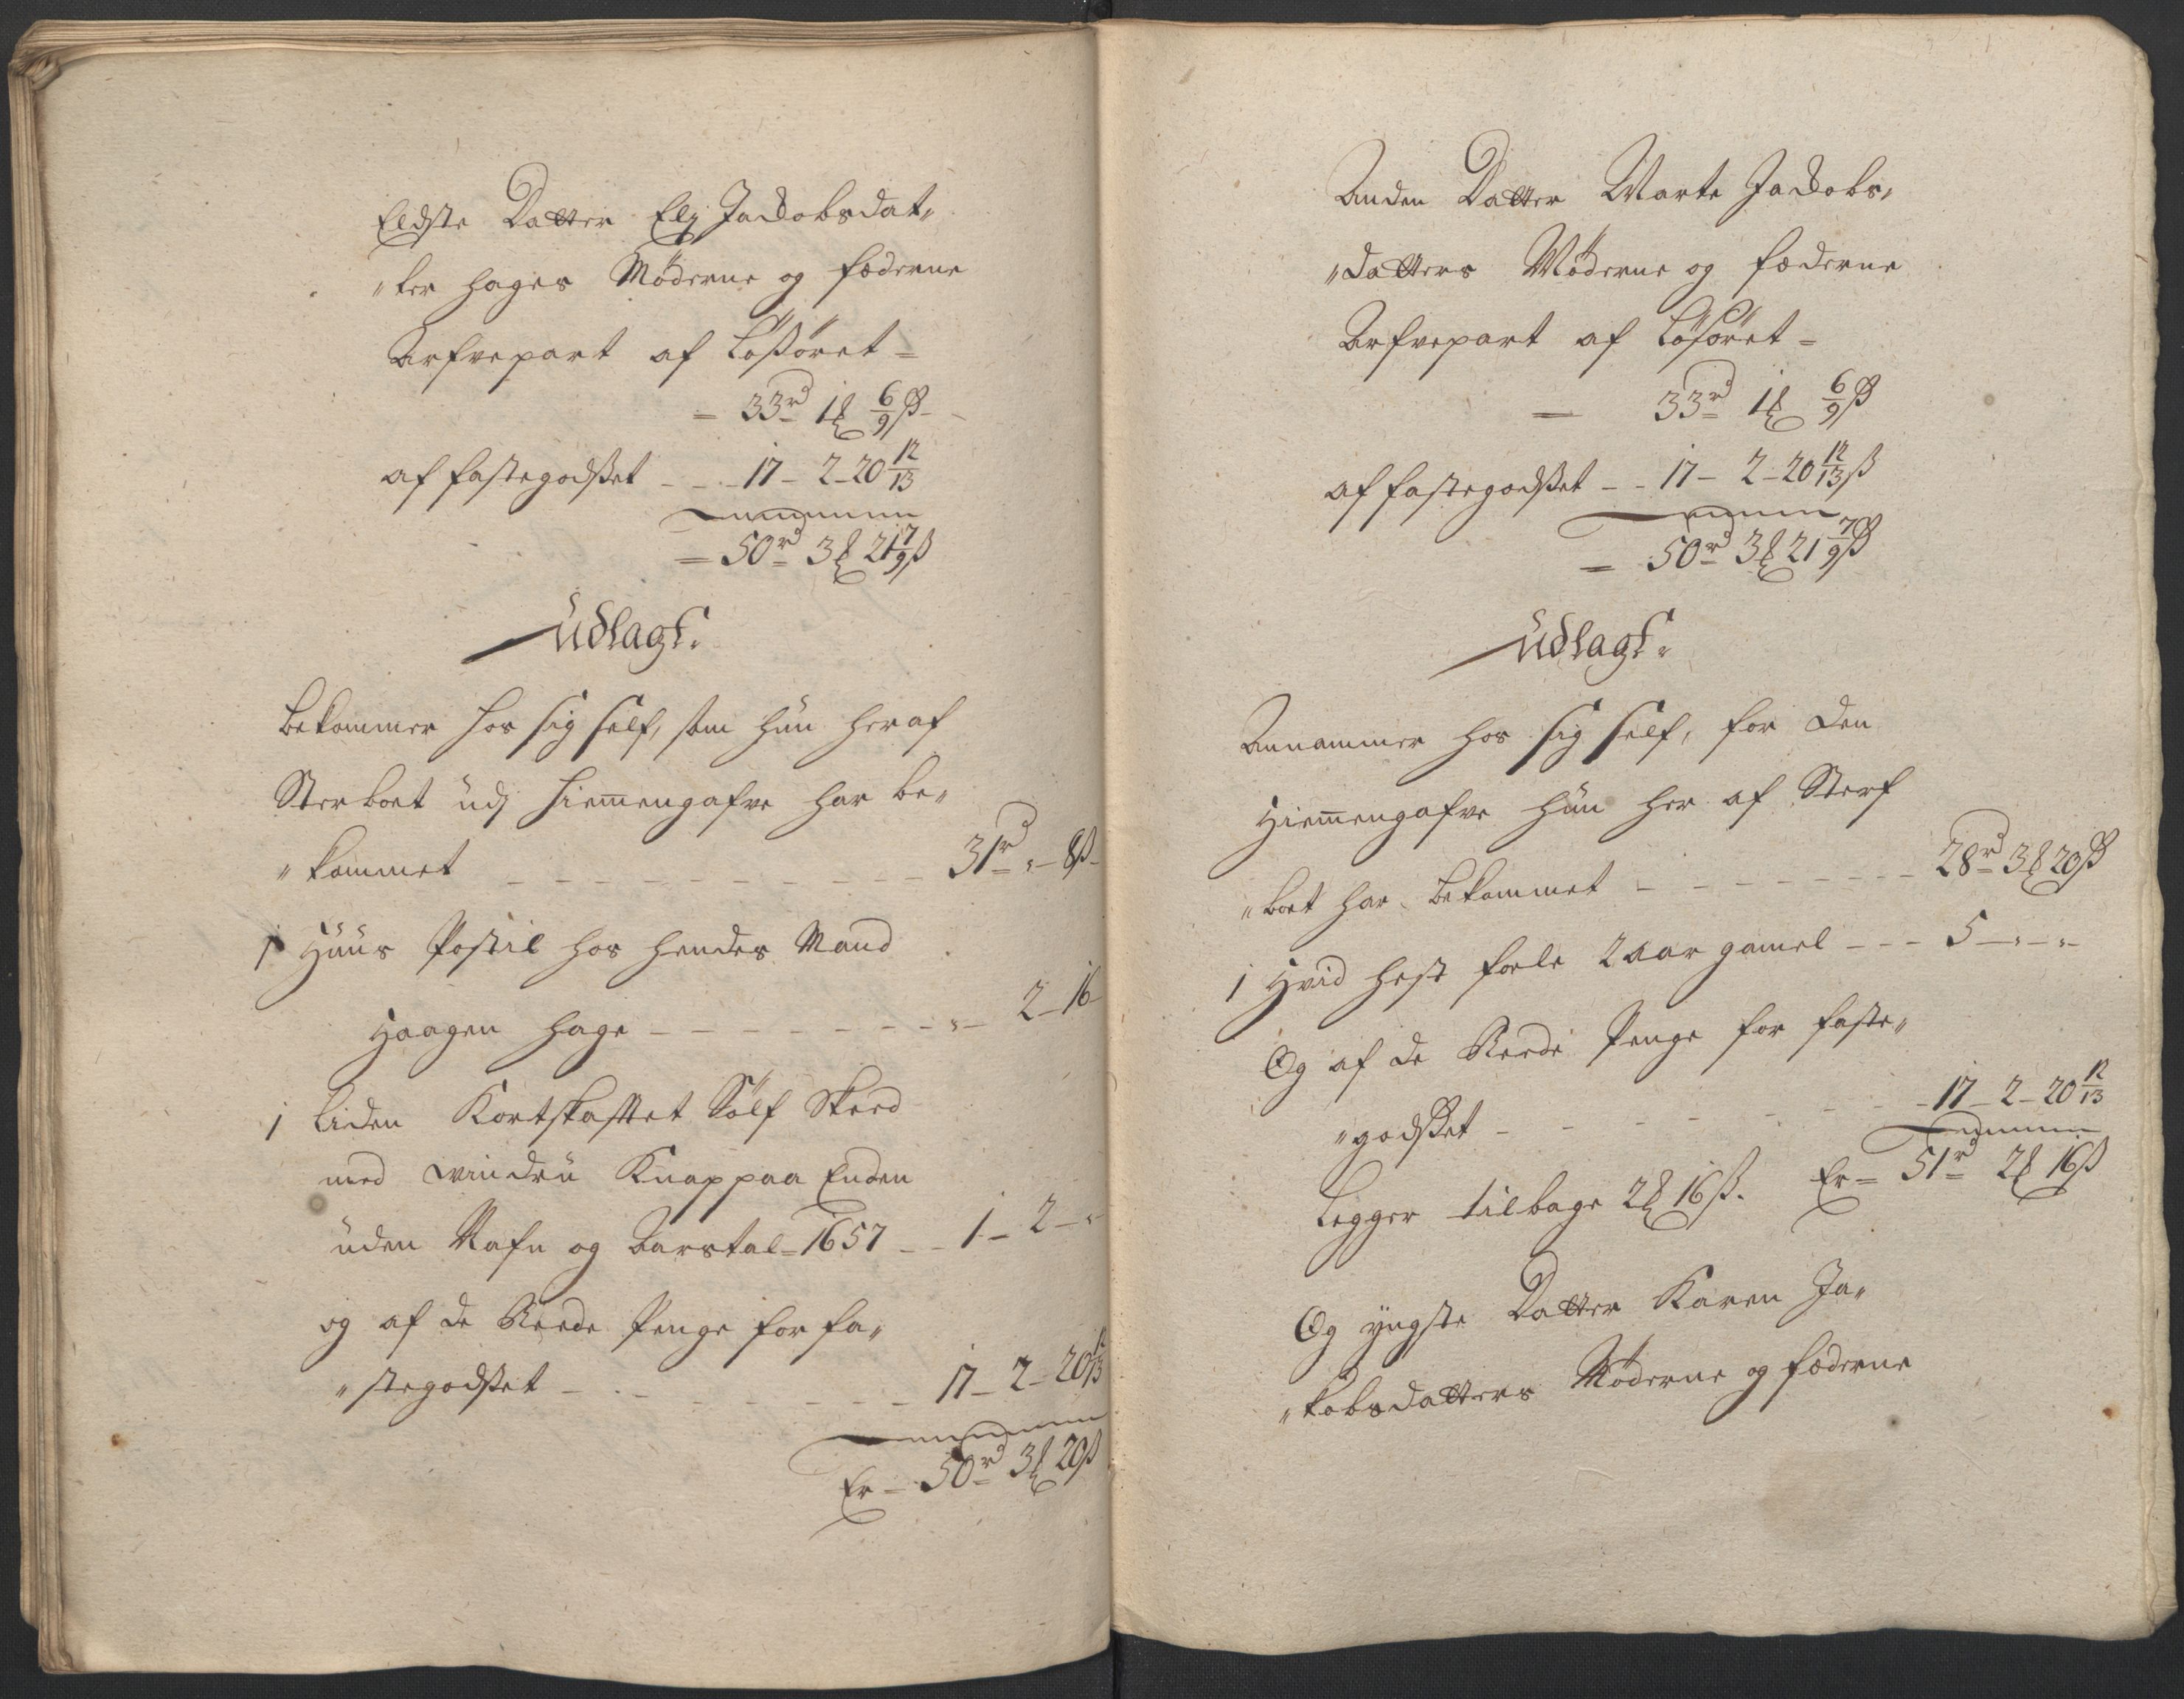 Eldste Datter Elj Jackobsdat„
„ter Hages Möderne og Fæderne
Arfvepart af Lößöret =
= 33rd 1℔ 6/9 ß -
af fastegodßet - - - 17 - 2 - 20 12/13
= 50rd 3℔ 21 7/9 ß
Udlagt.
Bekommer hos sig self, som hun her af
Sterboet udj Hiemmengafve har be„
„kommet - - - - - - - - - 31rd „ - 8ß -
1 Huus Postil hos hendes Mand
Haagen Hage - - - - - - - - „ - 2 - 16
1 Liden Kortskafftet Sölf Skeed
med vindru Knap paa Enden
uden Nafn og Aarstal = 1657 - - 1 - 2 - „
og af de Reede Penge for fa„
„stegodßet - - - - - - - 17 - 2 - 20 12/13
Er = 50rd 3℔ 20ß
Anden Datter Marte Jackobs„
„datters Möderne og Fæderne
Arfvepart af Lösöret =
= 33rd 1℔ 6/9 ß
af fastegodßet - - 17 - 2 - 20 12/13 ß
= 50rd 3℔ 21 7/9 ß
Udlagt.
Annammer hos sig self, for den
Hiemmengafve hun her af Sterf
„boet har bekommet - - - - - - - 28rd 3℔ 20ß
1 Hvid hest fole 2 aar gamel - - - 5 - „ - „
Og af de Reede Penge for faste„
„godßet - - - - - - - 17 - 2 - 20 12/13
Er = 51rd 2℔ 16ß
Legger tilbage 2℔ 16ß.
Og yngste Datter Karen Ja„
„kobsdatters Möderne og Fæderne